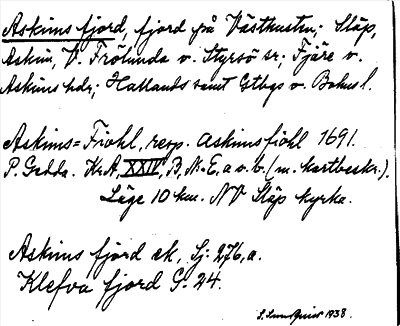 Askims fjord, fjord på Västkusten; Släp,
Askim, V. Frölunda o. Styrsö sr; Fjäre o.
Askims hdr; Hallands samt Gtbgs o. Bohus l.
Askims=Fiohl, resp. Askimsfiohl 1691.
P. Gedda. KrA, XXIV, B, N:E, a o. b. (m. kartbeskr.).
Läge 10 km. NV Släp kyrka.
Askims fjord ek, Sj: 276, a.
Klefva fjord G. 24.
S. Lundquist 1938.